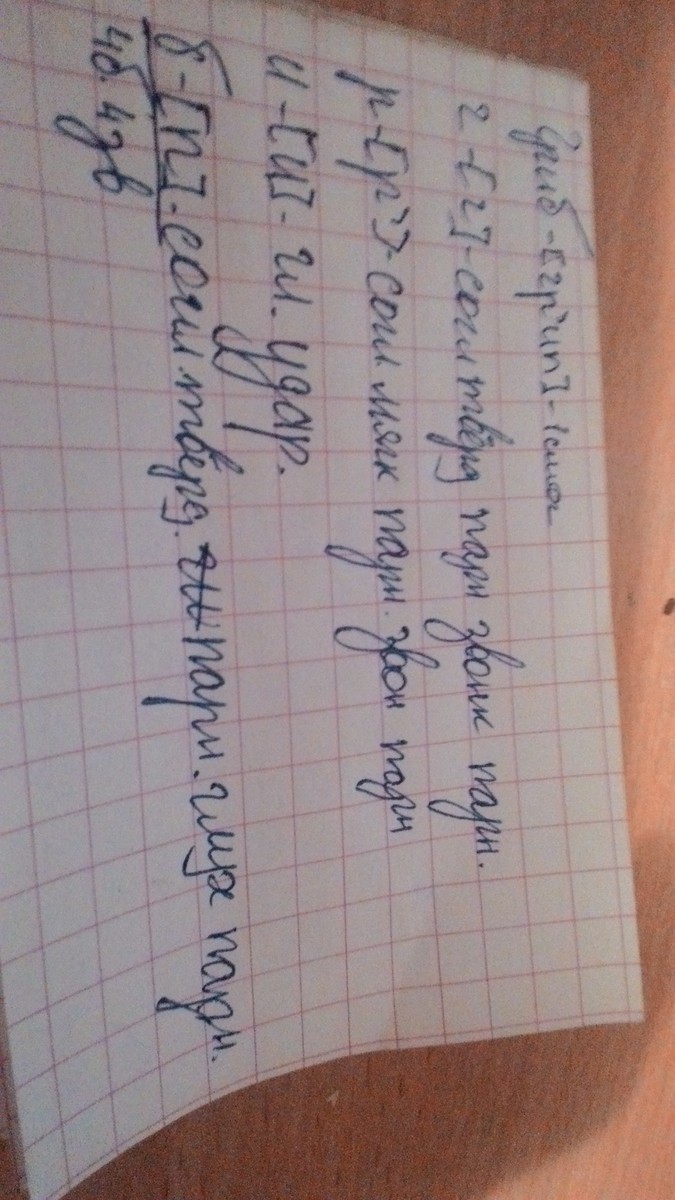 Гриб - [гр'ип] - 1 слог
г - [г] - согл твёрд парн звонк парн.
р - [р'] - согл мягк парн. звон парн
и - [и] - гл. удар.
б - [п] - согл твёрд. парн. глух парн.
4б. 4зв